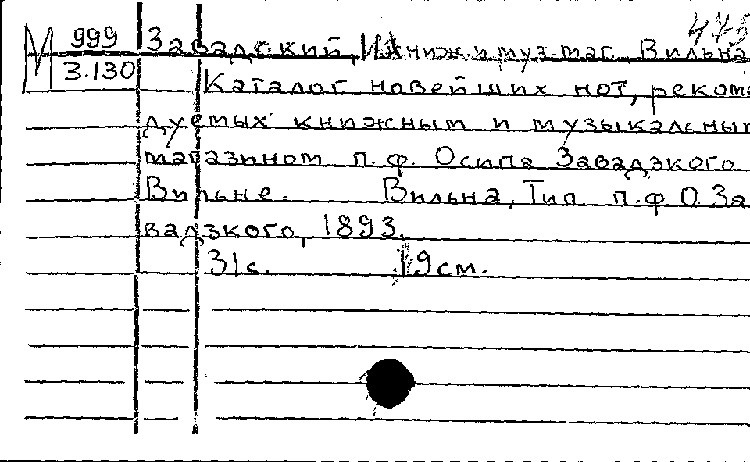 М 999 Завадский, И книж. и муз. маг. Вильна
3.130 Каталог новейших нот, реком
дуемых книжным и музыкальным
магазином п.ф. Осипа Завадзкого
Вильне. Вильна, Тип п.ф О За
вадзкого, 1893.
31с. 19см.